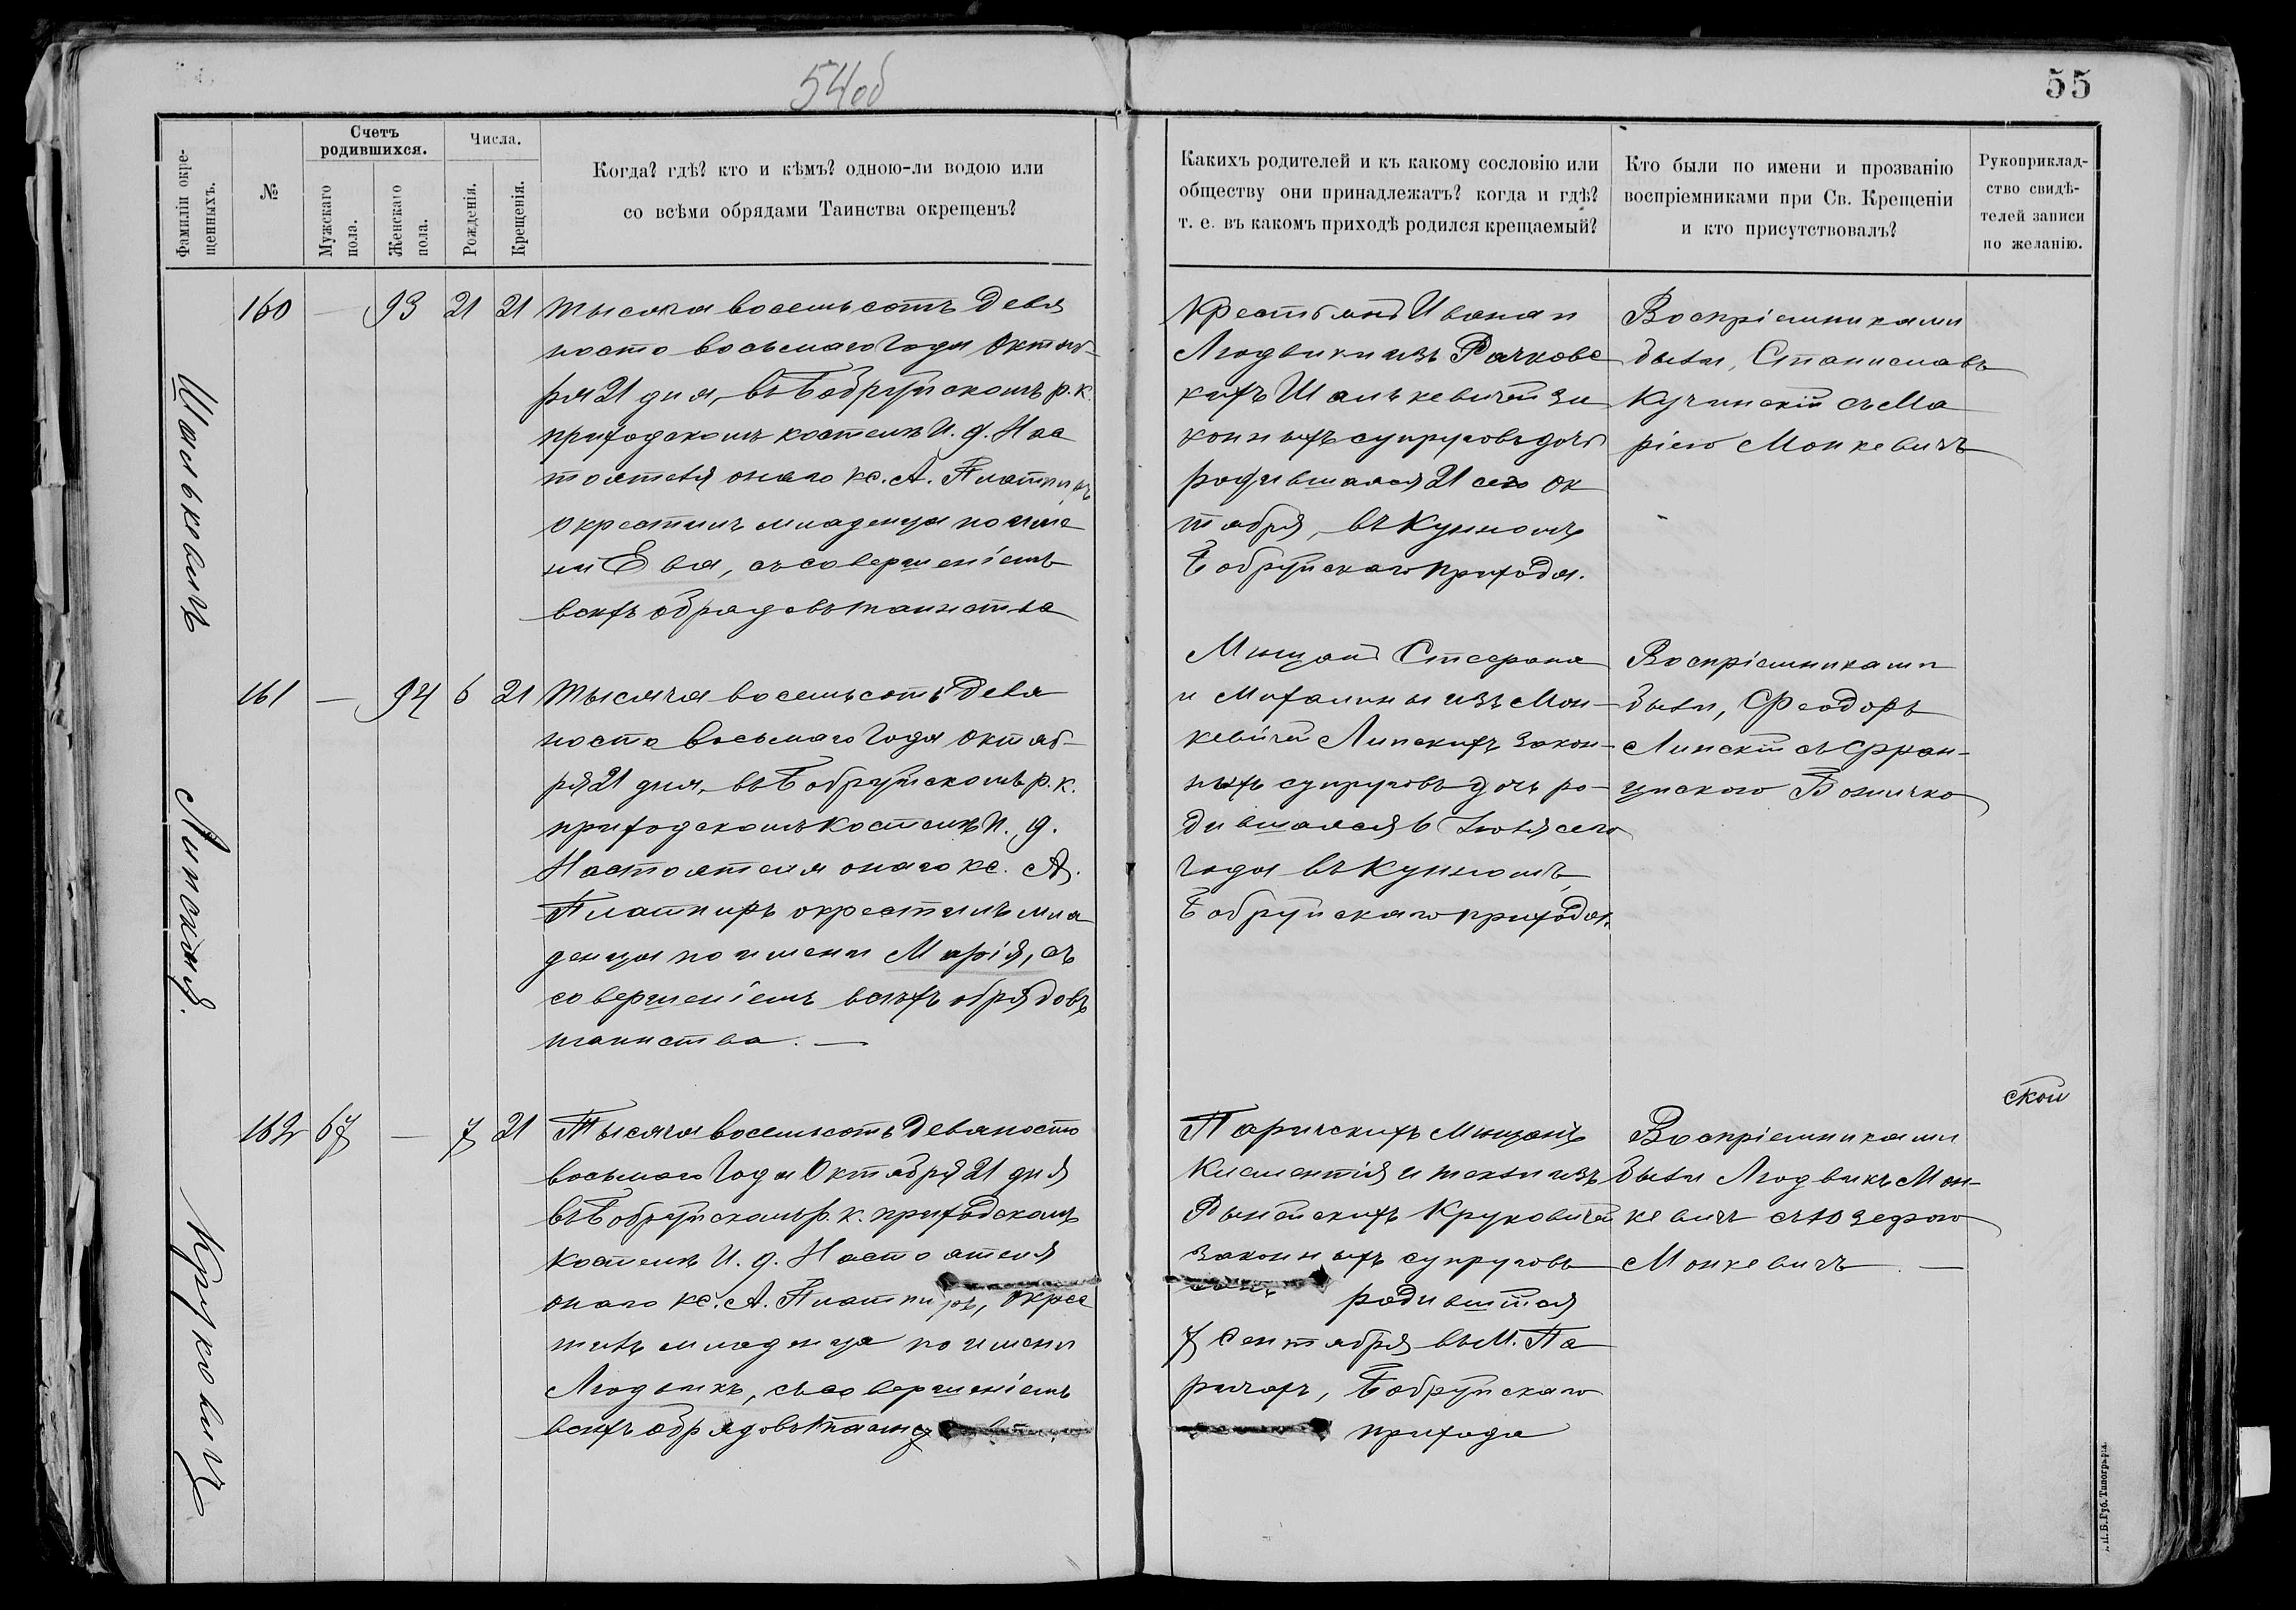 54об
55
Фамиліи окре-
щенныхъ.
№
Счетъ
родившихся.
Мужскаго
пола.
Женскаго
пола.
Числа.
Рожденія.
Крещенія.
Когда? гдѣ? кто и кѣмъ? одною-ли водою или
со всѣми обрядами Таинства окрещенъ?
Какихъ родителей и къ какому сословію или
обществу они принадлежатъ? когда и гдѣ?
т. е. въ какомъ приходѣ родился крещаемый?
Кто были по имени и прозванію
воспріемниками при Св. Крещеніи
и кто присутствовалъ?
Рукоприклад-
ство свидѣ-
телей записи
по желанію.
Шалькевичъ
160 — 93 21 21
Тысяча восемьсотъ девя
носто восьмаго года Октяб-
ря 21 дня, въ Бобруйскомъ р. к.
приходскомъ костелѣ И. д. Нас
тоятеля онаго кс. А. Платпиръ
окрестилъ младенца по име
ни Ева, съ совершеніемъ
всѣхъ обрядовъ таинства
Крестьянъ Ивана и
Людвики изъ Рачковс
кихъ Шалькевичей за
конныхъ супруговъ дочь
родившаяся 21 сего Ок
тября, въ
Бобруйскаго прихода.
Воспріемниками
были, Станиславъ
Кучинскій съ Ма
ріею Монкевичъ
Липская.
161 — 94 6 21
Тысяча восемьсотъ девя
носто восьмаго года Октяб-
ря 21 дня, въ Бобруйскомъ р. к.
приходскомъ костелѣ И. д.
Настоятеля онаго кс. А.
Платпиръ окрестилъ мла
денца по имени Марія, съ
совершеніемъ всѣхъ обрядовъ
таинства. —
Мѣщанъ Стефана
и Михалины изъ Мон-
кевичей Липскихъ закон-
ныхъ супруговъ дочь ро-
дившаяся 6 Іюля сего
года въ
Бобруйскаго прихода.
Воспріемниками
были, Феодоръ
Липскій съ Фран-
цискою
Круковичъ
162 67 — 7 21
Тысяча восемьсотъ девяносто
восьмаго года Октября 21 дня
въ Бобруйскомъ р. к. приходскомъ
костелѣ И. д. Настоятеля
онаго кс. А. Платпиръ, окрес
тилъ младенца по имени
Людвикъ, съ совершеніемъ
всѣхъ обрядовъ
Паричскихъ мѣщанъ
Клементія и Теклі изъ
Круковичей
законныхъ супруговъ
сынъ родившійся
7 Сентября въ М. Па
ричахъ, Бобруйскаго
прихода
Воспріемниками
были Людвикъ Мон-
кевичъ съ Юзефою
Монкевичъ. —
ской